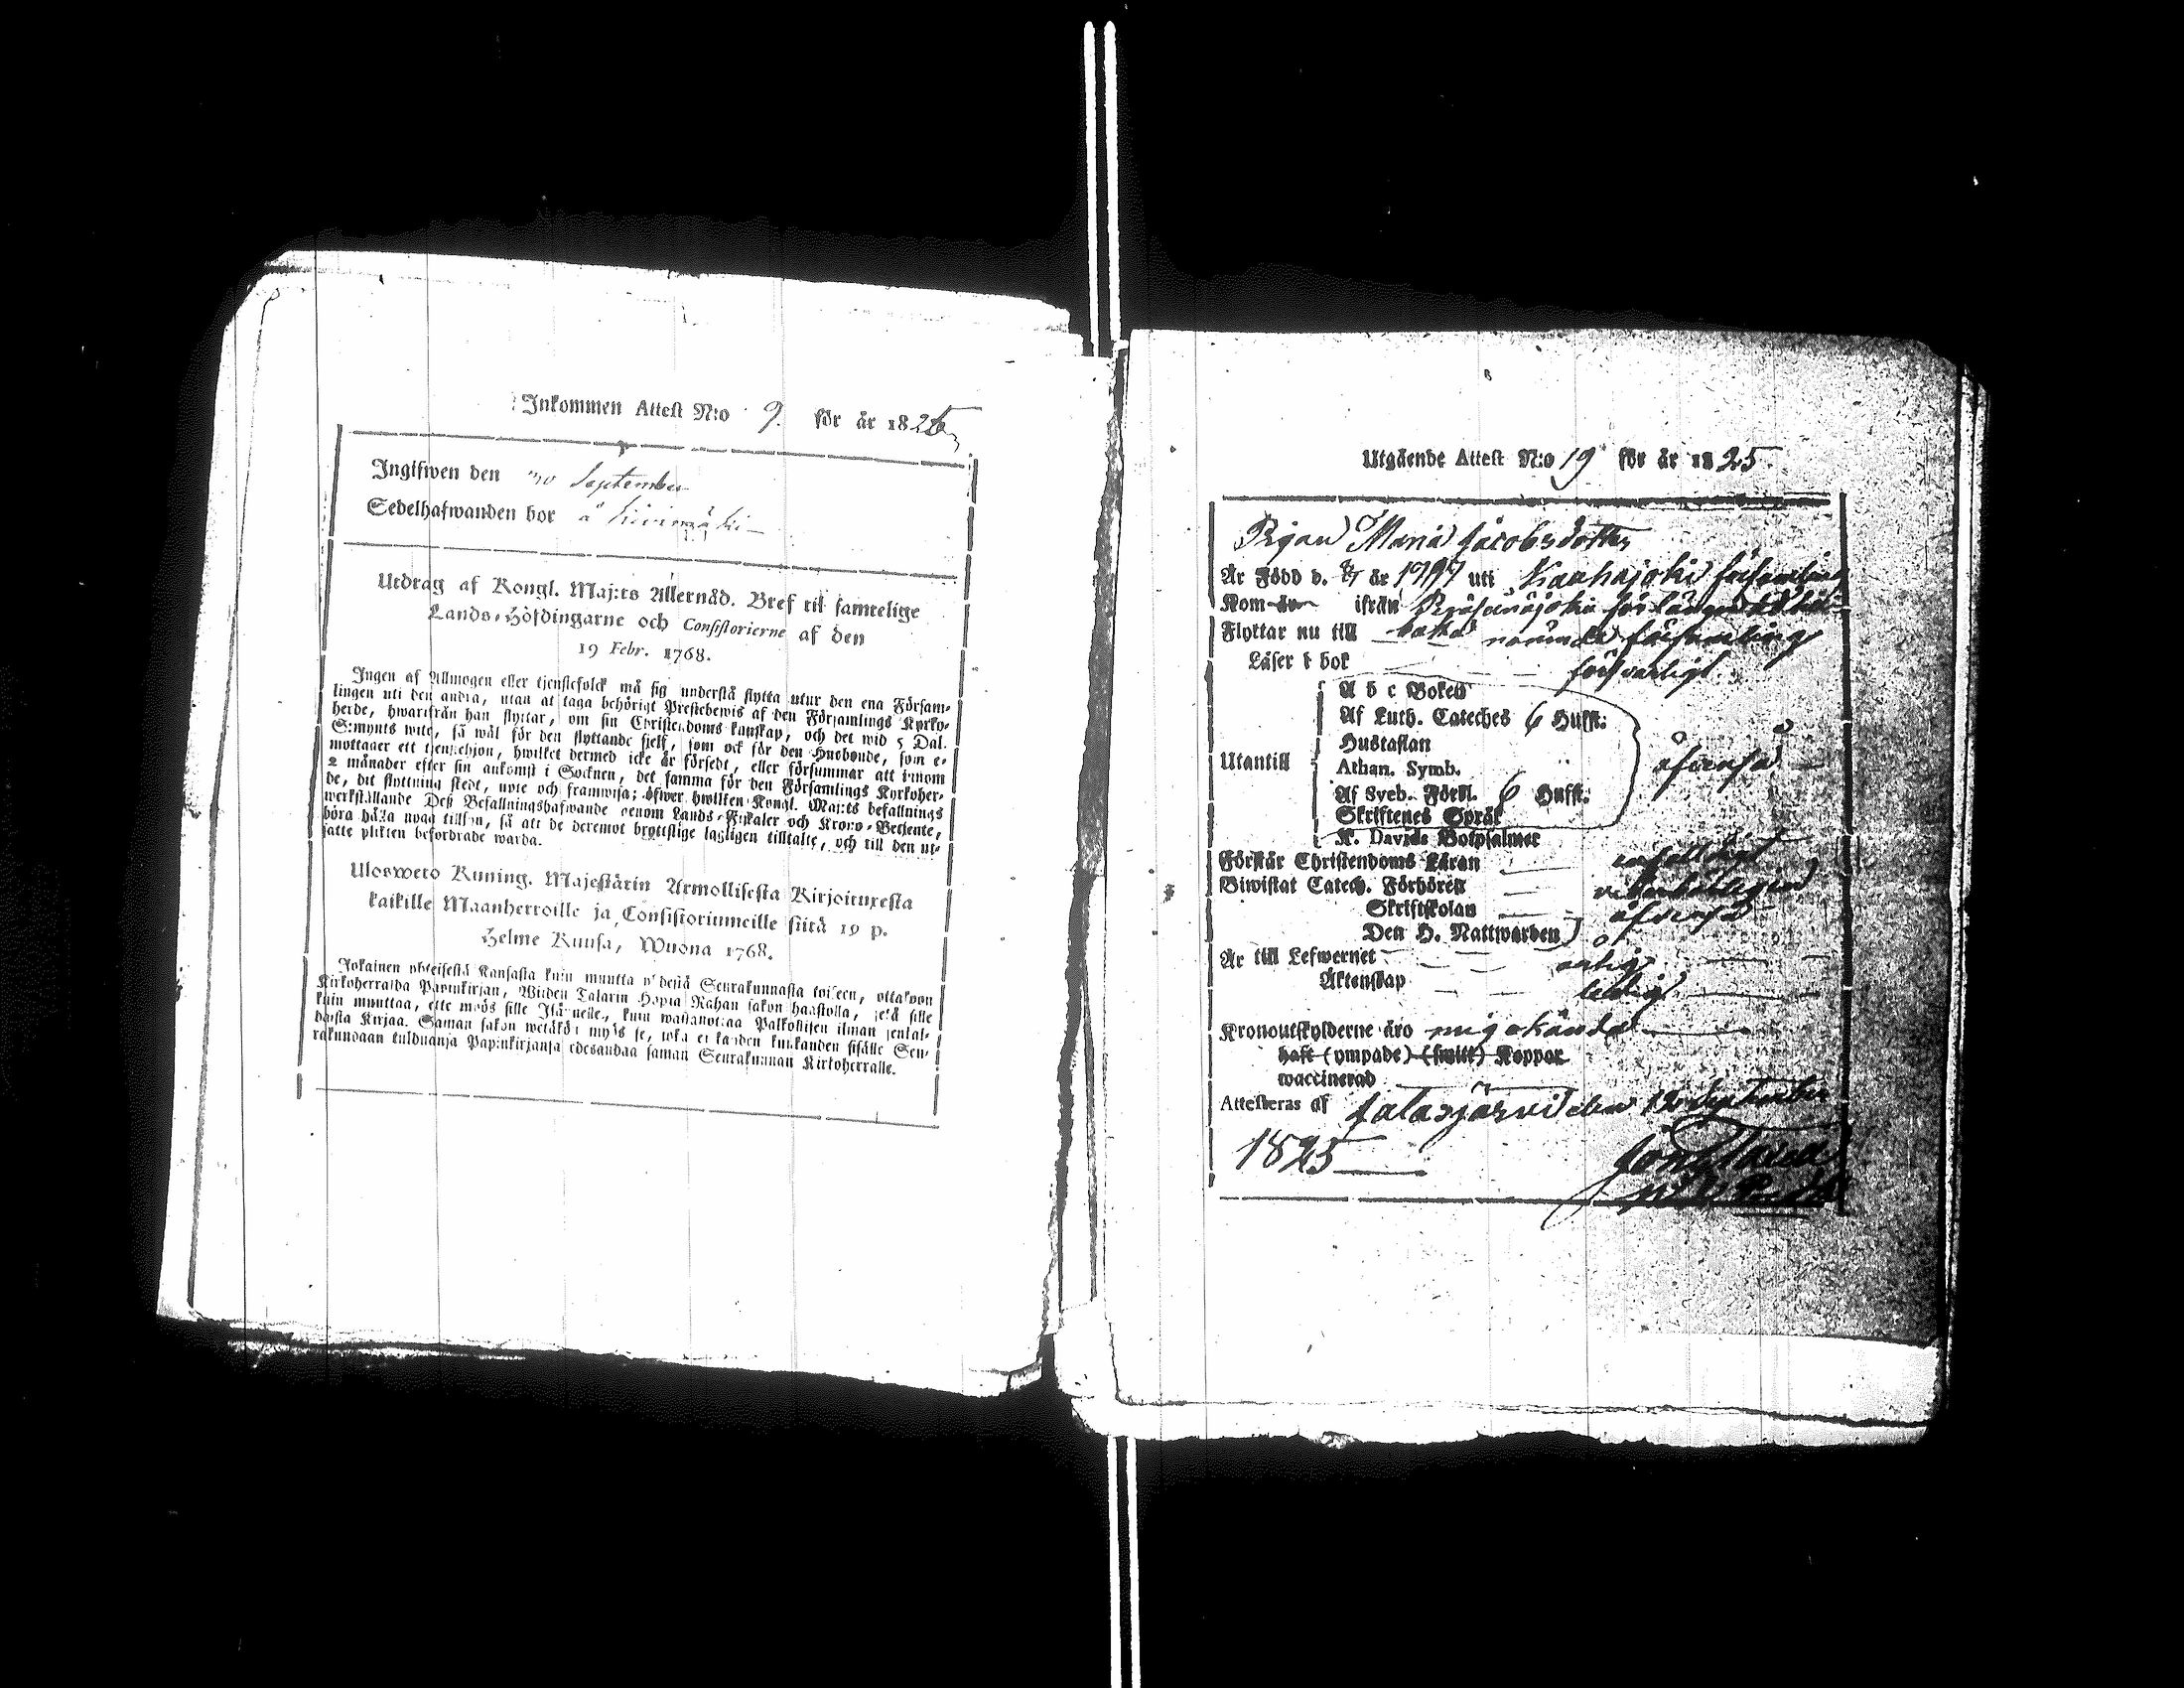 Inkommen Attest N:o 9. för år 1825
Ingifwen den 30 September
Sedelhafwanden bor å
Utdrag af Kongl. Maj:ts Allernåd. Bref til samtelige
Lands-Höfdingarne och Consistorierne af den
19 Febr. 1768.
Ingen af Allmogen eller tjenstefolck må sig understå flytta utur den ena Försam-
lingen uti den andra, utan at taga behörigt Prestebewis af den Församlings Kyrko-
herde, hwarifrån han flyttar, om sin Christendoms kunskap, och det wid 5 Dal.
S:mynts wite, så wäl för den flyttande sjelf, som ock för den Husbonde, som e-
mottager ett tjenstehjon, hwilket dermed icke är försedt, eller försummar att innom
2 månader efter sin ankomst i Socknen, det samma för den Församlings Kyrkoher-
de, dit flyttning skedt, upte och framwisa; öfwer hwilken Kongl. Maj:ts befallnings
werkställande Deß Befallningshafwande genom Lands-Fiskaler och Krono-Betjente,
böra hålla noga tillsyn, så att de deremot brottslige lagligen tilltalte, och till den ut-
satte plikten befordrade warda.
Ulosweto Kuning. Majestätin Armollisesta Kirjoituxesta
kaikille Maanherroille ja Consistoriumeille siitä 19 p.
Helme Kuusa, Wuona 1768.
Jokainen yhteisestä Kansasta kuin muutta yhdestä Seurakunnasta toiseen, ottakoon
Kirkoherralda Papinkirjan, Wijden Talarin Hopia Rahan sakon haastolla, sekä sille
kuin muuttaa, ette myös sille Isännelle, kuin wastanottaa Palkollisen ilman sental-
daista Kirjaa. Saman sakon wetäkön myös se, joka ei kahden kuukauden sisälle Seu-
rakundaan tulduanja Papinkirjansa edesandaa saman Seurakunnan Kirkoherralle.
Utgående Attest N:o 19 för år 1825.
Pigan Maria Jacobsdotter
Är Född d. år 1797 uti Kauhajoki församling
Kom år ifrån
Flyttar nu till församling
Läser i bok försvarligt
A b c Boken
Af Luth. Cateches 6 Hufst:
Hustaflan
Utantill Athan. Symb. äfvenså
Af Sveb. Förkl. 6 Hufst:
Skriftenes Språk
K. Davids Botpsalmer
Förstår Christendoms Läran enfaldigt
Biwistat Catech. Förhören vederbörligen
Skriftskolan äfvenså
Den H. Nattwarden
Är till Lefwernet ärlig
Äktenskap ledig
Kronoutskylderne äro mig okända
haft (ympade) (switt) Koppor
waccinerad
Attesteras af Jalasjärvi den September
1825